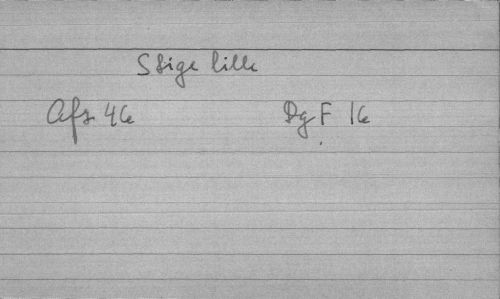 Stige lille
Afs 46
DgF 16